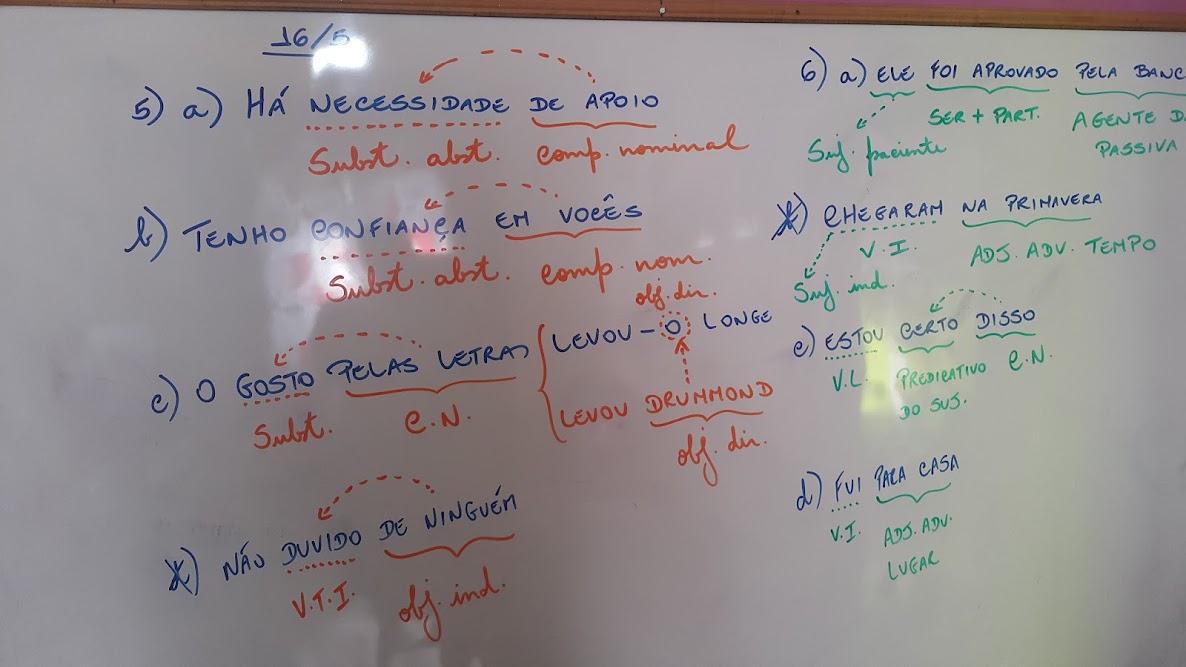 16/5
5) a) HÁ NECESSIDADE DE APOIO
Subst. abst. comp. nominal
b) TENHO CONFIANÇA EM VOCÊS
Subst. abst. comp. nom.
c) O GOSTO PELAS LETRAS
Subst. C.N.
obj. dir.
LEVOU-O LONGE
LEVOU DRUMMOND
obj. dir.
NÃO DUVIDO DE NINGUÉM
V.T.I. obj. ind.
6) a) ELE FOI APROVADO PELA BANC
Suj. paciente SER + PART. AGENTE DA
PASSIVA
CHEGARAM NA PRIMAVERA
V.I. ADJ. ADV. TEMPO
Suj. ind.
c) ESTOU CERTO DISSO
V.L. PREDICATIVO C.N.
DO SUJ.
d) FUI PARA CASA
V.I. ADJ. ADV.
LUGAR